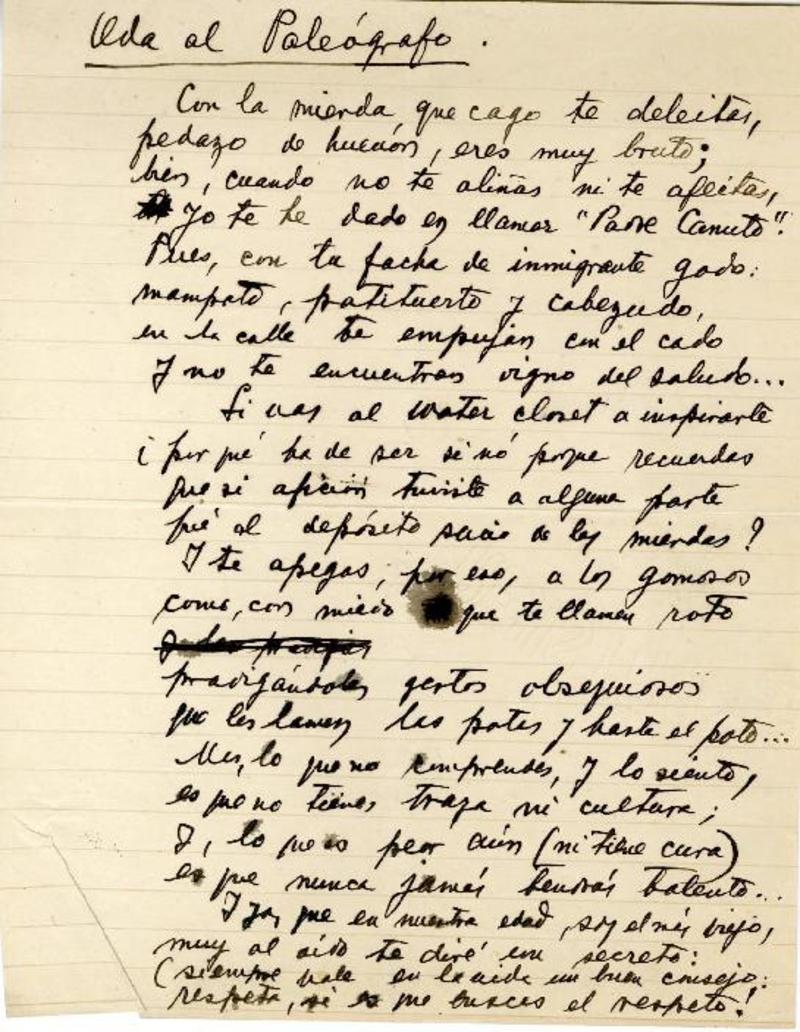 Oda al Paleógrafo.
Con la mierda, que cago te deleitas,
pedazo de hueuón, eres muy bruto;
bien, cuando no te aliñas ni te afeitas,
Yo te he dado en llamar "Padre Canuto".
Pues, con tu facha de inmigrante godo:
mampato, patituerto y cabezudo,
en la calle te empujan con el codo
y no te encuentran digno del saludo...
Si vas al water closet a inspirarte
¿por qué ha de ser si nó porque recuerdas
que si afición tuviste a alguna parte
fué al depósito sucio de las mierdas?
Y te apegas, por eso, a los gomosos
como, con miedo que te llamen roto
prodigándoles gestos obsequiosos
que les lamen las patas y hasta el poto...
Mas, lo que no comprendes, y lo siento,
es que no tienes traza ni cultura;
Y, lo que es peor aún (ni tiene cura)
es que nunca jamás tendrás talento...
Y yo, que en nuestra edad, soy el más viejo,
muy al oído te diré un secreto:
(siempre vale en la vida un buen consejo:
respeta, si es que buscas el respeto!